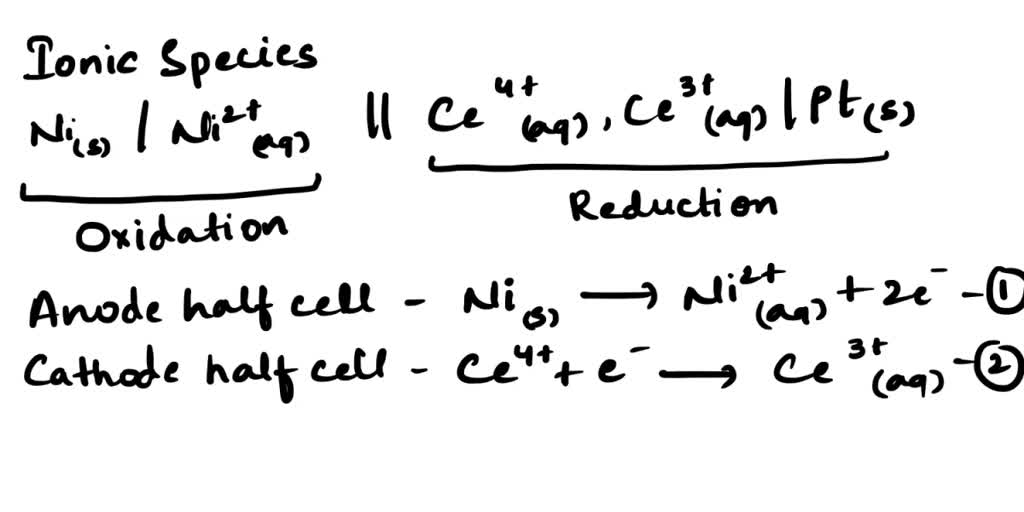 Ionic Species
Ni(s) | Ni²⁺(aq) || Ce⁴⁺(aq), Ce³⁺(aq) | Pt(s)
Oxidation Reduction
Anode half cell - Ni(s) ⟶ Ni²⁺(aq) + 2e⁻ - ①
Cathode half cell - Ce⁴⁺ + e⁻ ⟶ Ce³⁺(aq) - ②